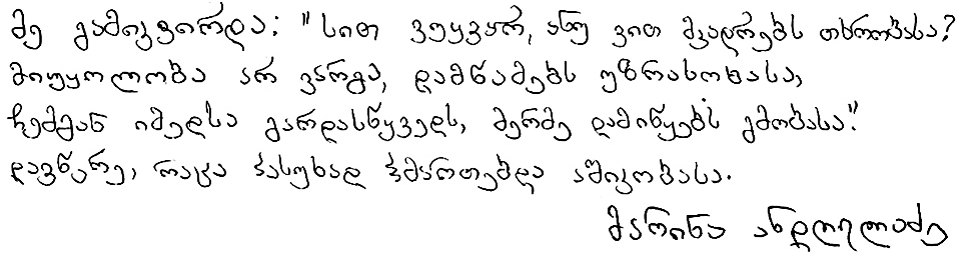 მე გამიკვირდა: "სით ვუყვარ, ანუ ვით მკადრებს თხრობასა?
მიუყოლობა არ ვარგა, დამწამებს უზრახობასა,
ჩემგან იმედსა გარდასწყვედს, მერმე დამიწყებს გმობასა."
დავწერე, რაცა პასუხად ჰმართებდა აშიკობასა.
მარინა ანდღულაძე